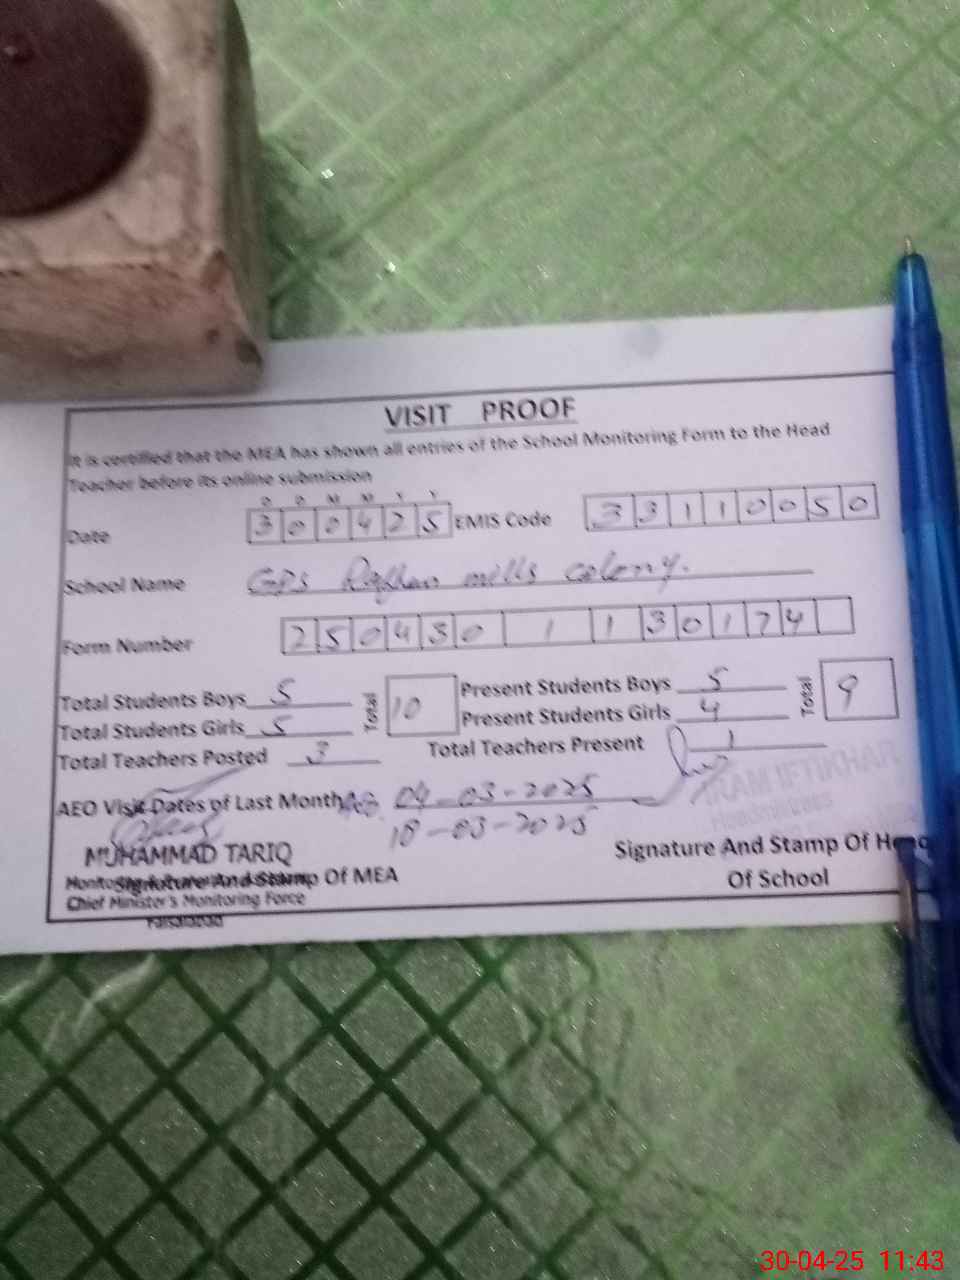 VISIT PROOF
It is certified that the MEA has shown all entries of the School Monitoring Form to the Head
Teacher before its online submission
D D M M Y Y
Date 3 0 0 4 2 5 EMIS Code 3 3 1 1 0 0 5 0
School Name GPS mills colony.
Form Number 2 5 0 4 3 0 1 1 3 0 1 7 4
Total Students Boys 5 Total 10 Present Students Boys 5 Total 9
Total Students Girls 5 Present Students Girls 4
Total Teachers Posted 3 Total Teachers Present 1
IRAM IFTIKHAR
Headmistress
AEO Visit Dates of Last Month 04-03-2025
18-03-2025
MUHAMMAD TARIQ
Signature And Stamp Of MEA
Chief Minister's Monitoring Force
Faisalabad
Signature And Stamp Of Head
Of School
30-04-25 11:43